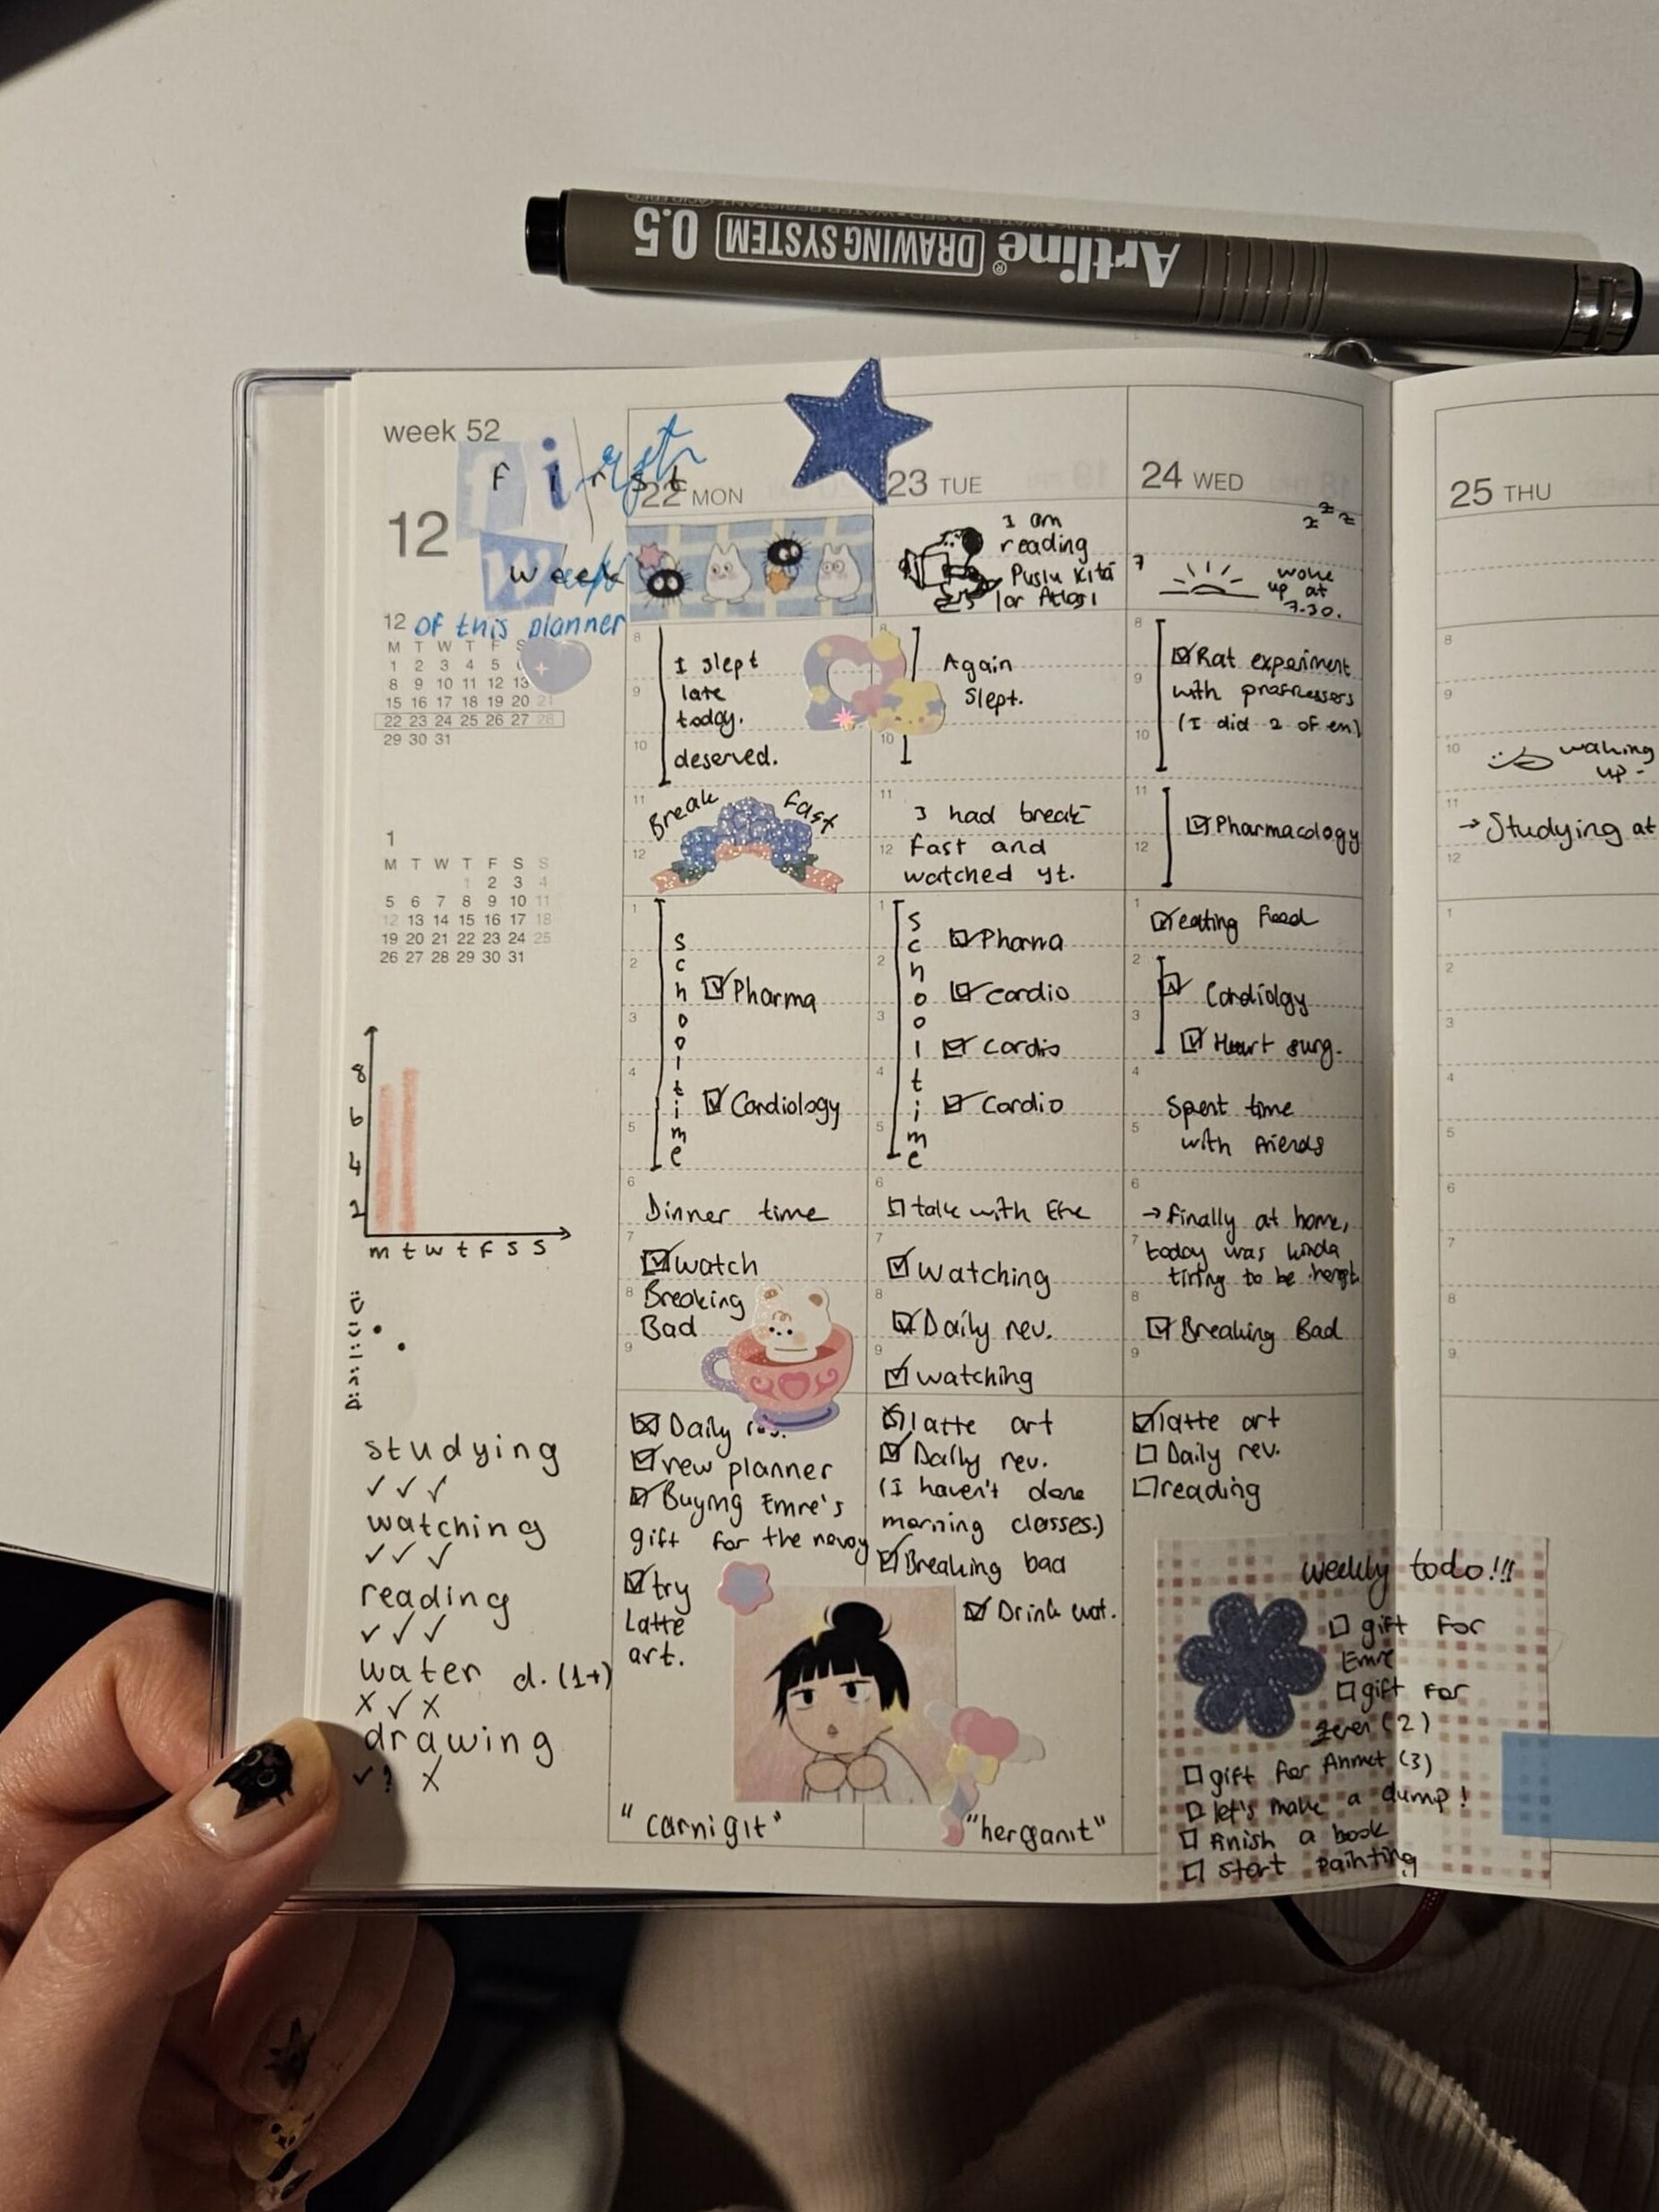 Artline® DRAWING SYSTEM 0.5
week 52
first
f i r s t
12
week
of this planner
12
M T W T F S
1 2 3 4 5
8 9 10 11 12 13
15 16 17 18 19 20 21
22 23 24 25 26 27 28
29 30 31
1
M T W T F S S
1 2 3 4
5 6 7 8 9 10 11
12 13 14 15 16 17 18
19 20 21 22 23 24 25
26 27 28 29 30 31
8
6
4
2
m t w t f s s
studying
✓ ✓ ✓
watching
✓ ✓ ✓
reading
✓ ✓ ✓
water d. (1+)
X ✓ X
drawing
✓ ? X
22 MON
8
I slept
late
9
today.
10
deserved.
11
Break fast
12
1
School time
2
☑ Pharma
3
4
☑ Cardiology
5
6
Dinner time
7
☑ watch
8
Breaking
Bad
9
☒ Daily
☑ new planner
☑ Buying Emre's
gift for the
☑ try
Latte
art.
"carnigit"
23 TUE
I am
reading
Puslu Kıta
lar Atlası
8
Again
Slept.
10
11
I had break-
12
fast and
watched yt.
1
School time
☑ Pharma
2
☑ cardio
3
☑ Cardio
4
☑ Cardio
5
6
talk with Efe
7
☑ watching
8
☑ Daily rev.
9
☑ watching
latte art
☑ Daily rev.
(I haven't done
morning classes.)
☑ Breaking bad
☑ Drink wat.
"herganit"
24 WED
z z z
7
woke
up at
7.30.
8
☑ Rat experiment
9
with
(I did 2 of em)
10
11
☑ Pharmacology
12
1
☑ eating food
2
☑ Cardiolgy
3
☑ Heart surg.
4
Spent time
5
with friends
6
→ finally at home,
7
today was kinda
tiring to be
8
☑ Breaking Bad
9
☑ latte art
☐ Daily rev.
☐ reading
weekly todo!!!
☐ gift for
Emre
☐ gift for
(2)
☐ gift for Ahmet (3)
☐ let's make a dump!
☐ finish a book
☐ start painting
25 THU
8
9
10
waking
up-
11
→ Studying at
12
1
2
3
4
5
6
7
8
9